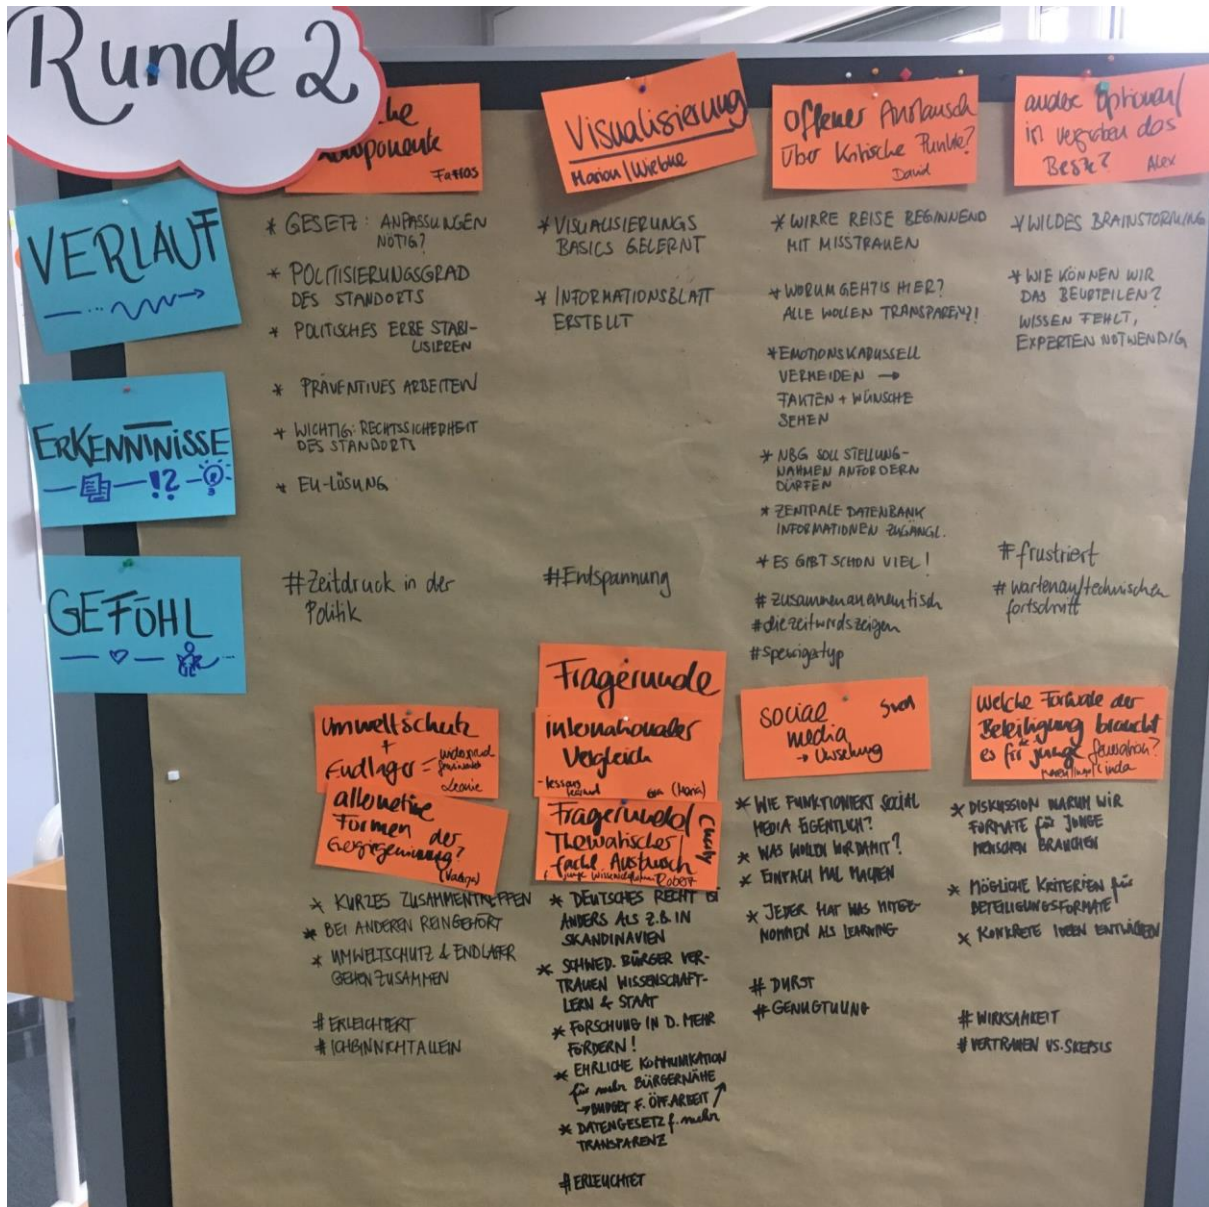 Runde 2
VERLAUF
ERKENNTNISSE
!?
GEFÜHL
Komponente
* GESETZ: ANPASSUNGEN
NÖTIG?
* POLITISIERUNGSGRAD
DES STANDORTS
* POLITISCHES ERBE STABI-
LISIEREN
* PRÄVENTIVES ARBEITEN
* WICHTIG: RECHTSSICHERHEIT
DES STANDORTS
* EU-LÖSUNG
#Zeitdruck in der
Politik
Visualisierung
Marion/Wiebke
* VISUALISIERUNGS
BASICS GELERNT
* INFORMATIONSBLATT
ERSTELLT
#Entspannung
Offener Austausch
über kritische Punkte?
David
* WIRRE REISE BEGINNEND
MIT MISSTRAUEN
* WORUM GEHT'S HIER?
ALLE WOLLEN TRANSPARENZ!
* EMOTIONSKARUSSELL
VERMEIDEN →
FAKTEN + WÜNSCHE
SEHEN
* NBG SOLL STELLUNG-
NAHMEN ANFORDERN
DÜRFEN
* ZENTRALE DATENBANK
INFORMATIONEN ZUGÄNGL.
* ES GIBT SCHON VIEL!
# zusammenaneinentisch
#diezeitwirdszeigen
andere Optionen/
in vergraben das
Beste? Alex
* WILDES BRAINSTORMING
* WIE KÖNNEN WIR
DAS BEURTEILEN?
WISSEN FEHLT,
EXPERTEN NOTWENDIG
#frustriert
#wartenauftechnischen
fortschritt
Umweltschutz
+
Endlager =
Leonie
alternative
Formen der
Energiegewinnung?
* KURZES ZUSAMMENTREFFEN
* BEI ANDEREN REINGEHÖRT
* UMWELTSCHUTZ & ENDLAGER
GEHEN ZUSAMMEN
# ERLEICHTERT
# ICHBINNICHTALLEIN
Fragerunde
internationaler
Vergleich
- lessons
learned
Fragerunde/
Thematischer
fachl. Austausch
Robert
* DEUTSCHES RECHT IST
ANDERS ALS Z.B. IN
SKANDINAVIEN
* SCHWED. BÜRGER VER-
TRAUEN WISSENSCHAFT-
LERN & STAAT
* FORSCHUNG IN D. MEHR
FÖRDERN!
* EHRLICHE KOMMUNIKATION
für mehr BÜRGERNÄHE
→ BUDGET F. ÖFF.ARBEIT ↗
* DATENGESETZ f. mehr
TRANSPARENZ
# ERLEUCHTET
social Sven
media
→ Umsetzung
* WIE FUNKTIONIERT SOCIAL
MEDIA EIGENTLICH?
* WAS WOLLEN WIR DAMIT?
* EINFACH MAL MACHEN
* JEDER HAT WAS MITGE-
NOMMEN ALS LEARNING
# DURST
# GENUGTUUNG
Welche Formate der
Beteiligung braucht
es für junge Generation?
Linda
* DISKUSSION WARUM WIR
FORMATE für JUNGE
MENSCHEN BRAUCHEN
* MÖGLICHE KRITERIEN für
BETEILIGUNGSFORMATE
* KONKRETE IDEEN ENTWICKELN
# WIRKSAMKEIT
# VERTRAUEN VS. SKEPSIS